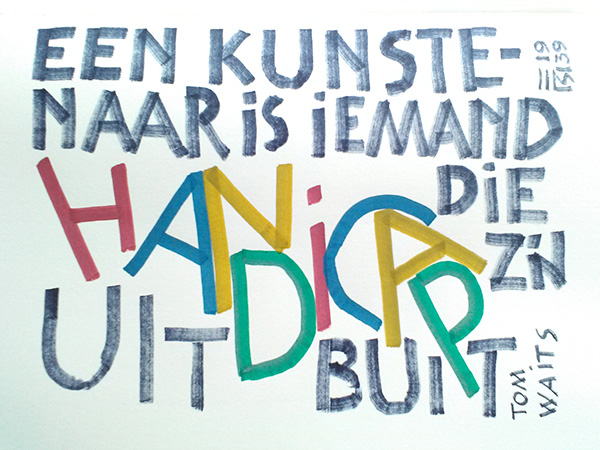 EEN KUNSTE-
NAAR iS iEMAND
DiE
Z'N
HANDiCAP
UITBUiT
TOM
WAiTS
19
39